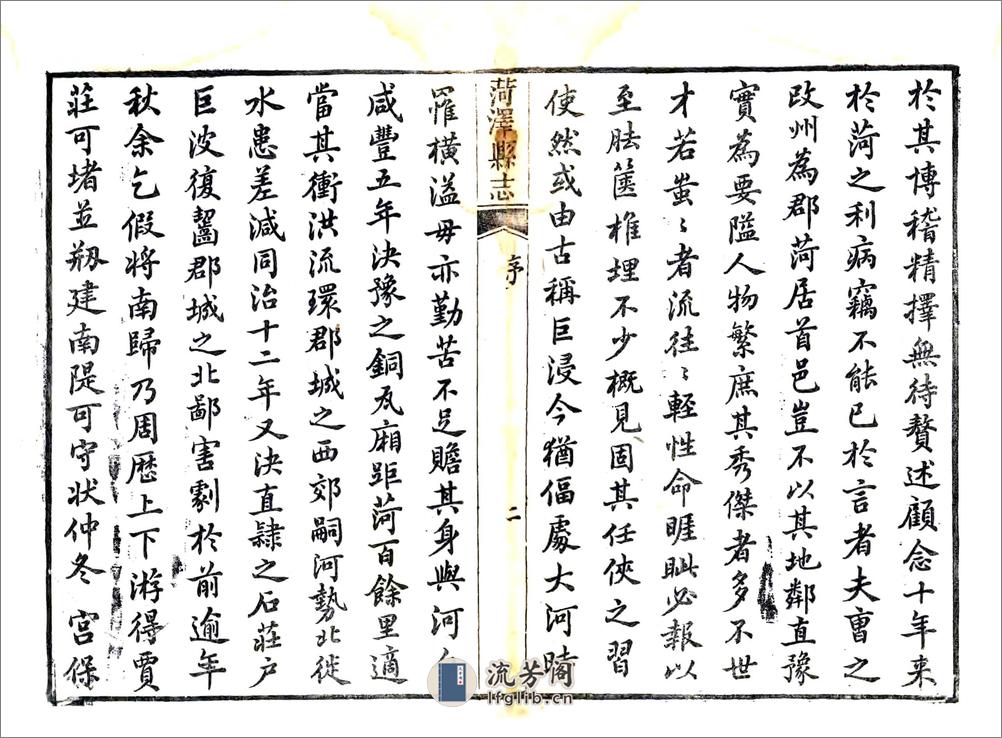 於其博稽精擇無待贅述顧念十年來
於菏之利病竊不能已於言者夫曹之
改州為郡菏居首邑豈不以其地鄰直豫
實為要隘人物繁庶其秀傑者多不世
才若蚩〻者流往〻輕性命睚眦必報以
至胠篋椎埋不少概見固其任俠之習
使然或由古稱巨浸今猶偪處大河時
菏澤縣志 序 二
罹橫溢毋亦勤苦不足贍其身與河
咸豐五年決豫之銅瓦廂距菏百餘里適
當其衝洪流環郡城之西郊嗣河勢北徙
水患差減同治十二年又決直隸之石莊戶
巨波復齧郡城之北鄙害劇於前逾年
秋余乞假將南歸乃周歷上下游得賈
莊可堵並剏建南隄可守狀仲冬 宮保
流芳阁
lfglib.cn